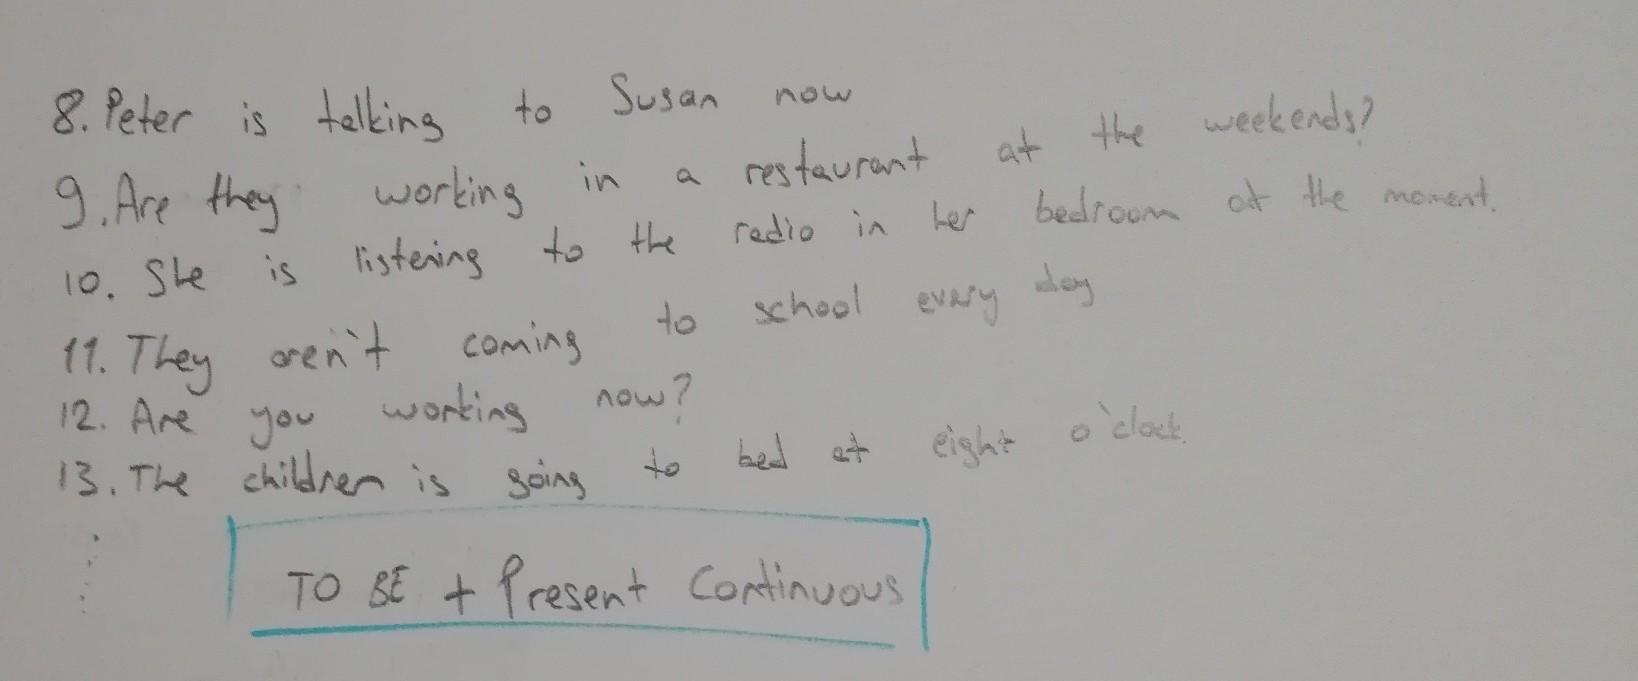 8. Peter is talking to Susan now
9. Are they working in a restaurant at the weekends?
10. She is listening to the radio in her bedroom at the moment.
11. They aren't coming to school every day
12. Are you working now?
13. The children is going to bed at eight o'clock.
TO BE + Present Continuous